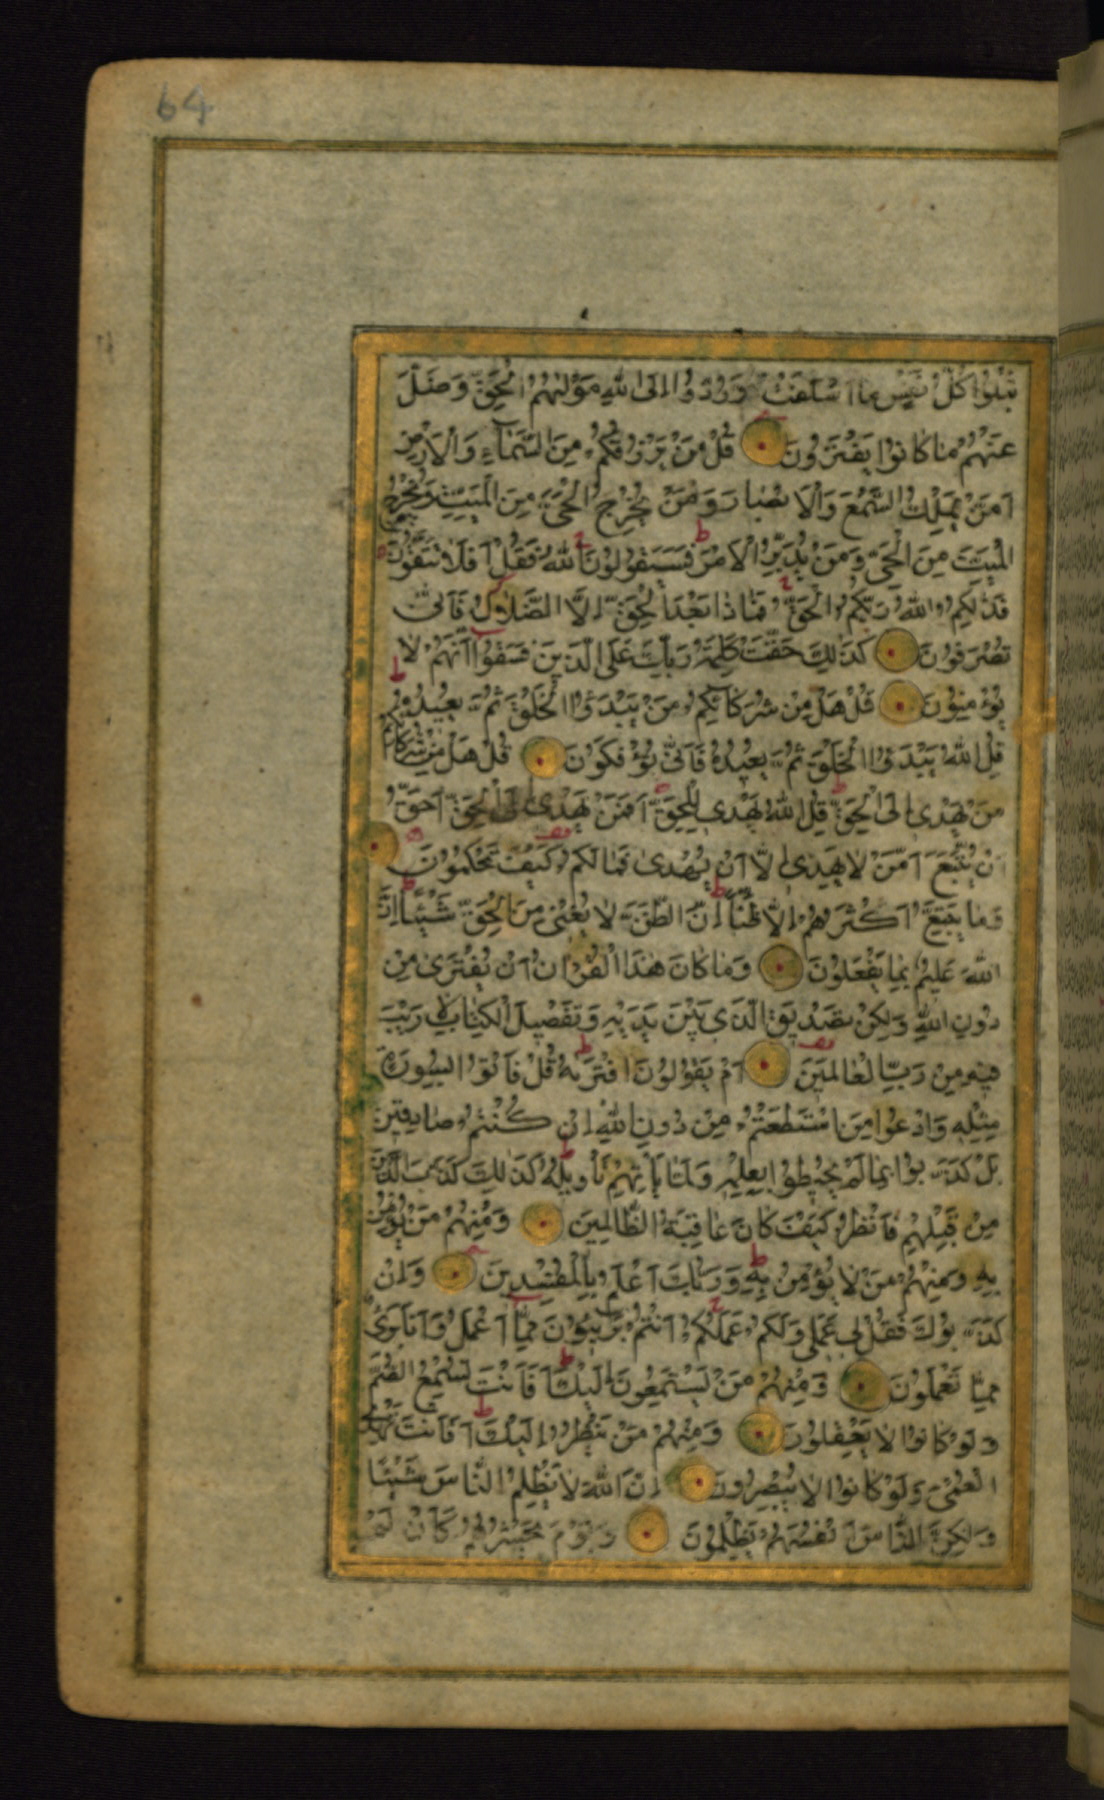 64
تَبْلُوا كُلُّ نَفْسٍ مَا اَسْلَفَتْ وَرُدُّوا اِلَى اللّٰهِ مَوْلٰيهُمُ الْحَقِّ وَضَلَّ
عَنْهُمْ مَا كَانُوا يَفْتَرُونَ قُلْ مَنْ يَرْزُقُكُمْ مِنَ السَّمَاءِ وَالْاَرْضِ
اَمَّنْ يَمْلِكُ السَّمْعَ وَالْاَبْصَارَ وَمَنْ يُخْرِجُ الْحَيَّ مِنَ الْمَيِّتِ وَيُخْرِجُ
الْمَيِّتَ مِنَ الْحَيِّ وَمَنْ يُدَبِّرُ الْاَمْرَ فَسَيَقُولُونَ اللّٰهُ فَقُلْ اَفَلَا تَتَّقُونَ
فَذٰلِكُمُ اللّٰهُ رَبُّكُمُ الْحَقُّ فَمَاذَا بَعْدَ الْحَقِّ اِلَّا الضَّلَالُ فَاَنّٰى
تُصْرَفُونَ كَذٰلِكَ حَقَّتْ كَلِمَةُ رَبِّكَ عَلَى الَّذِينَ فَسَقُوا اَنَّهُمْ لَا
يُؤْمِنُونَ قُلْ هَلْ مِنْ شُرَكَائِكُمْ مَنْ يَبْدَؤُا الْخَلْقَ ثُمَّ يُعِيدُهُ
قُلِ اللّٰهُ يَبْدَؤُا الْخَلْقَ ثُمَّ يُعِيدُهُ فَاَنّٰى تُؤْفَكُونَ قُلْ هَلْ مِنْ شُرَكَائِكُمْ
مَنْ يَهْدِى اِلَى الْحَقِّ قُلِ اللّٰهُ يَهْدِى لِلْحَقِّ اَفَمَنْ يَهْدِى اِلَى الْحَقِّ اَحَقُّ
اَنْ يُتَّبَعَ اَمَّنْ لَا يَهِدِّى اِلَّا اَنْ يُهْدٰى فَمَا لَكُمْ كَيْفَ تَحْكُمُونَ
وَمَا يَتَّبِعُ اَكْثَرُهُمْ اِلَّا ظَنًّا اِنَّ الظَّنَّ لَا يُغْنِى مِنَ الْحَقِّ شَيْئًا اِنَّ
اللّٰهَ عَلِيمٌ بِمَا يَفْعَلُونَ وَمَا كَانَ هٰذَا الْقُرْاٰنُ اَنْ يُفْتَرٰى مِنْ
دُونِ اللّٰهِ وَلٰكِنْ تَصْدِيقَ الَّذِى بَيْنَ يَدَيْهِ وَتَفْصِيلَ الْكِتَابِ لَا رَيْبَ
فِيهِ مِنْ رَبِّ الْعَالَمِينَ اَمْ يَقُولُونَ افْتَرٰيهُ قُلْ فَاْتُوا بِسُورَةٍ
مِثْلِهِ وَادْعُوا مَنِ اسْتَطَعْتُمْ مِنْ دُونِ اللّٰهِ اِنْ كُنْتُمْ صَادِقِينَ
بَلْ كَذَّبُوا بِمَا لَمْ يُحِيطُوا بِعِلْمِهِ وَلَمَّا يَاْتِهِمْ تَاْوِيلُهُ كَذٰلِكَ كَذَّبَ الَّذِينَ
مِنْ قَبْلِهِمْ فَانْظُرْ كَيْفَ كَانَ عَاقِبَةُ الظَّالِمِينَ وَمِنْهُمْ مَنْ يُؤْمِنُ
بِهِ وَمِنْهُمْ مَنْ لَا يُؤْمِنُ بِهِ وَرَبُّكَ اَعْلَمُ بِالْمُفْسِدِينَ وَاِنْ
كَذَّبُوكَ فَقُلْ لِى عَمَلِى وَلَكُمْ عَمَلُكُمْ اَنْتُمْ بَرِيئُونَ مِمَّا اَعْمَلُ وَاَنَا بَرِىءٌ
مِمَّا تَعْمَلُونَ وَمِنْهُمْ مَنْ يَسْتَمِعُونَ اِلَيْكَ اَفَاَنْتَ تُسْمِعُ الصُّمَّ
وَلَوْ كَانُوا لَا يَعْقِلُونَ وَمِنْهُمْ مَنْ يَنْظُرُ اِلَيْكَ اَفَاَنْتَ تَهْدِى
الْعُمْىَ وَلَوْ كَانُوا لَا يُبْصِرُونَ اِنَّ اللّٰهَ لَا يَظْلِمُ النَّاسَ شَيْئًا
وَلٰكِنَّ النَّاسَ اَنْفُسَهُمْ يَظْلِمُونَ وَيَوْمَ يَحْشُرُهُمْ كَاَنْ لَمْ